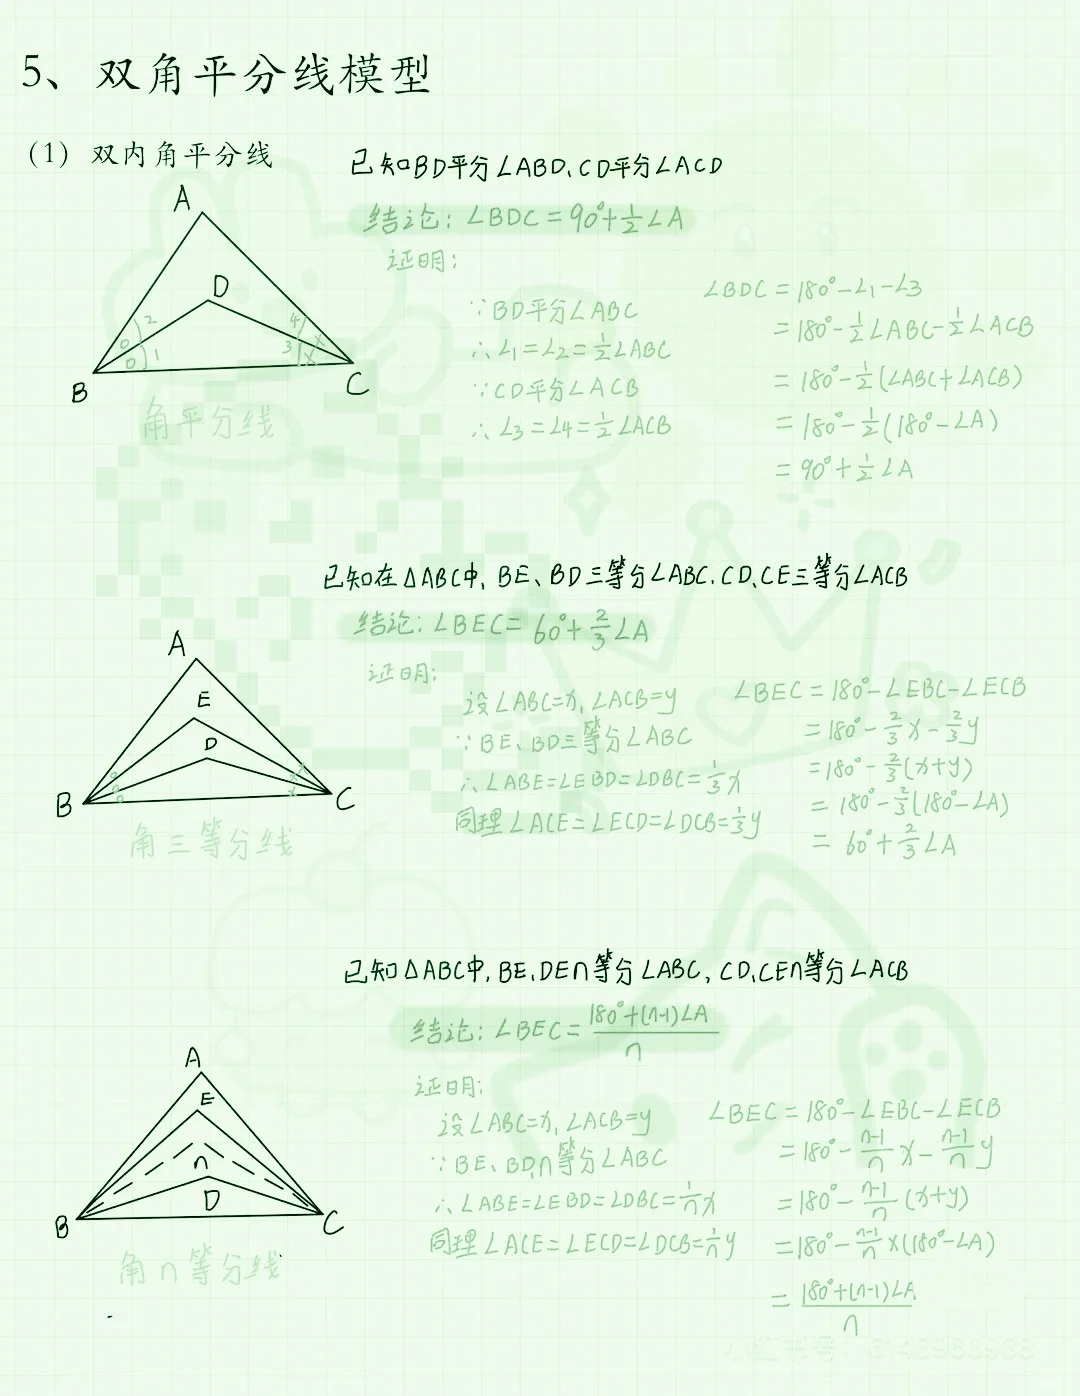 5、双角平分线模型
(1) 双内角平分线
已知BD平分∠ABD、CD平分∠ACD
结论：∠BDC=90°+½∠A
证明：
∵BD平分∠ABC
∴∠1=∠2=½∠ABC
∵CD平分∠ACB
∴∠3=∠4=½∠ACB
∠BDC=180°-∠1-∠3
=180°-½∠ABC-½∠ACB
=180°-½(∠ABC+∠ACB)
=180°-½(180°-∠A)
=90°+½∠A
A
D
2
1
4
3
B
C
角平分线
已知在△ABC中，BE、BD三等分∠ABC，CD、CE三等分∠ACB
结论：∠BEC=60°+⅔∠A
证明：
设∠ABC=x，∠ACB=y
∵BE、BD三等分∠ABC
∴∠ABE=∠EBD=∠DBC=⅓x
同理∠ACE=∠ECD=∠DCB=⅓y
∠BEC=180°-∠EBC-∠ECB
=180°-⅔x-⅔y
=180°-⅔(x+y)
=180°-⅔(180°-∠A)
=60°+⅔∠A
A
E
D
B
C
角三等分线
已知△ABC中，BE、DEn等分∠ABC，CD、CEn等分∠ACB
结论：∠BEC=(180°+(n-1)∠A)/n
证明：
设∠ABC=x，∠ACB=y
∵BE、BD，n等分∠ABC
∴∠ABE=∠EBD=∠DBC=1/n x
同理∠ACE=∠ECD=∠DCB=1/n y
∠BEC=180°-∠EBC-∠ECB
=180°-(n-1)/n x-(n-1)/n y
=180°-(n-1)/n (x+y)
=180°-(n-1)/n×(180°-∠A)
=(180°+(n-1)∠A)/n
A
E
n
D
B
C
角n等分线
小红书号：